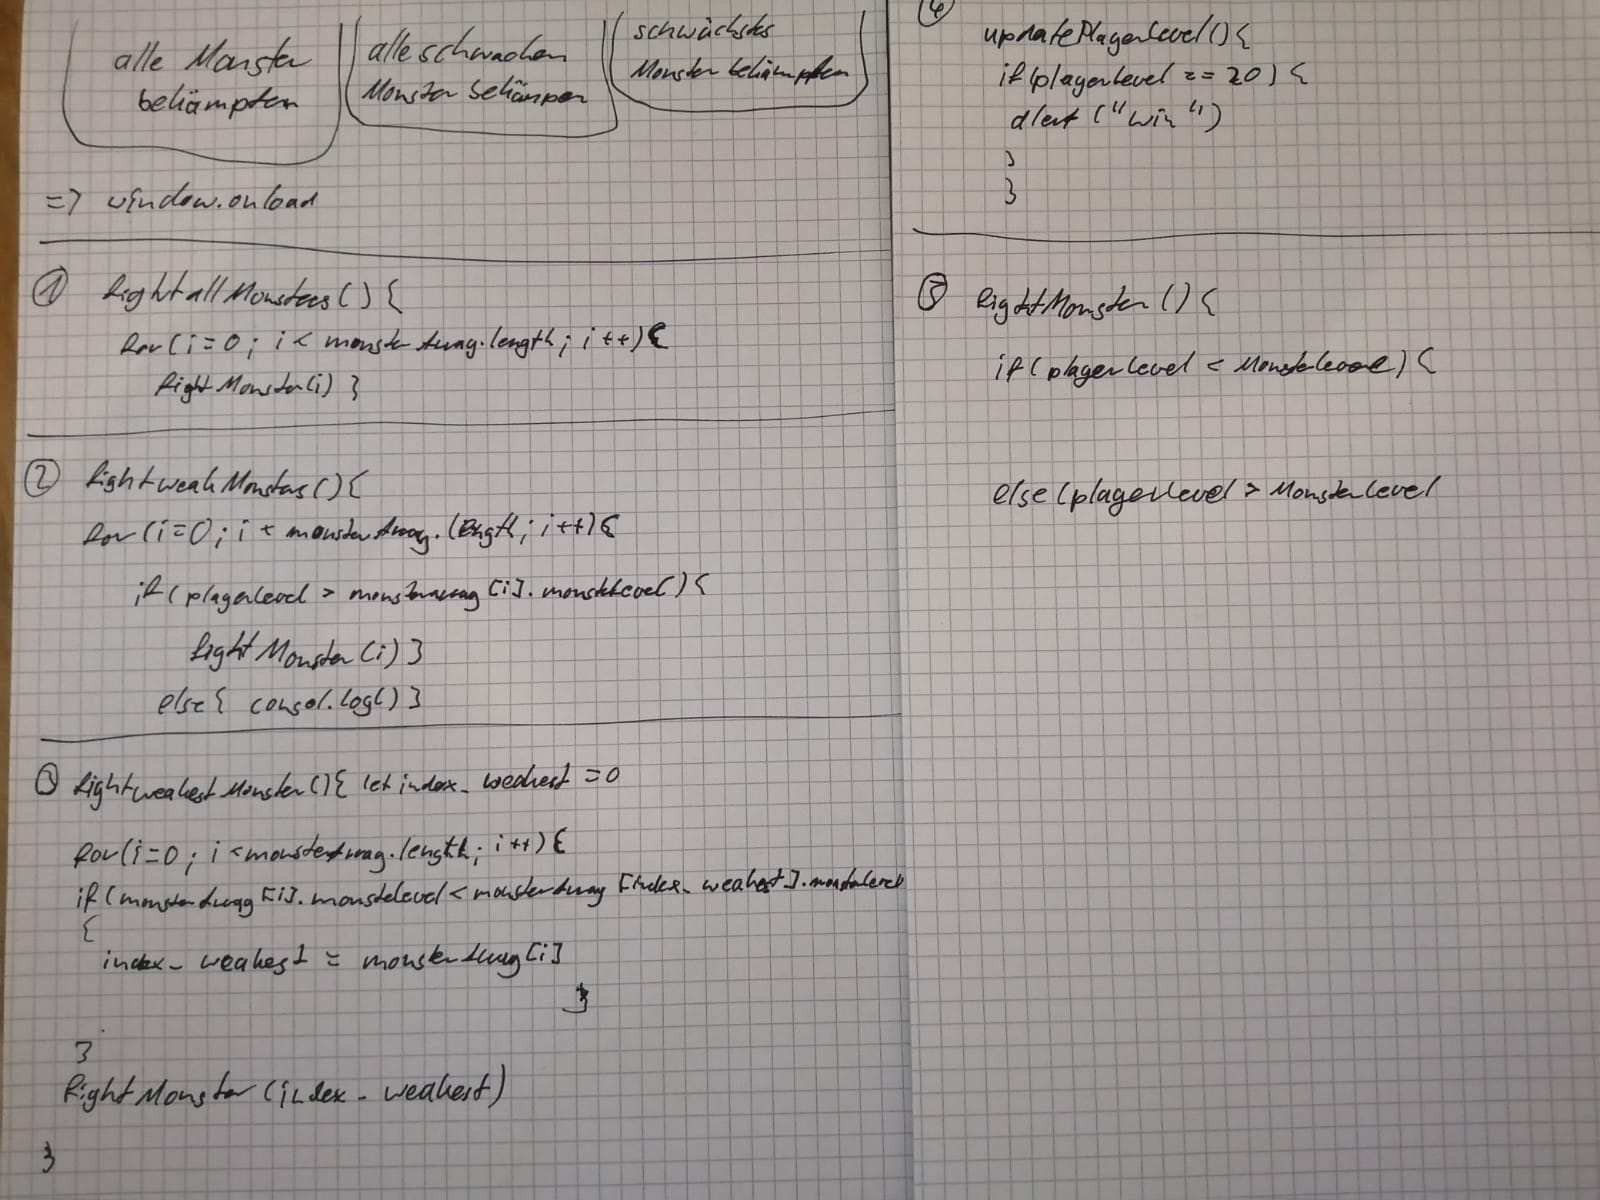 alle Monster
bekämpfen
alle schwachen
Monster bekämpen
schwächstes
Monster bekämpfen
=> window.onload
① fightallMonsters(){
for(i=0; i< monsterArray.length; i++){
fightMonster(i) }
② fightweakMonsters(){
for(i=0; i < monsterArray.length; i++){
if(playerLevel > monsterArray[i].monsterLevel){
fightMonster(i) }
else{ consol.log() }
③ fightweakestMonster(){ let index_weakest = 0
for(i=0; i <monsterArray.length; i++){
if(monsterArray[i].monsterLevel < monsterArray[index_weakest].monsterLevel
{
index_weakest = monsterArray[i]
}
}
fightMonster(index_weakest)
}
④
updatePlayerLevel(){
if(playerLevel == 20){
alert ("win")
}
}
⑤ fightMonster(){
if(playerLevel < MonsterLevel){
else(playerLevel > MonsterLevel